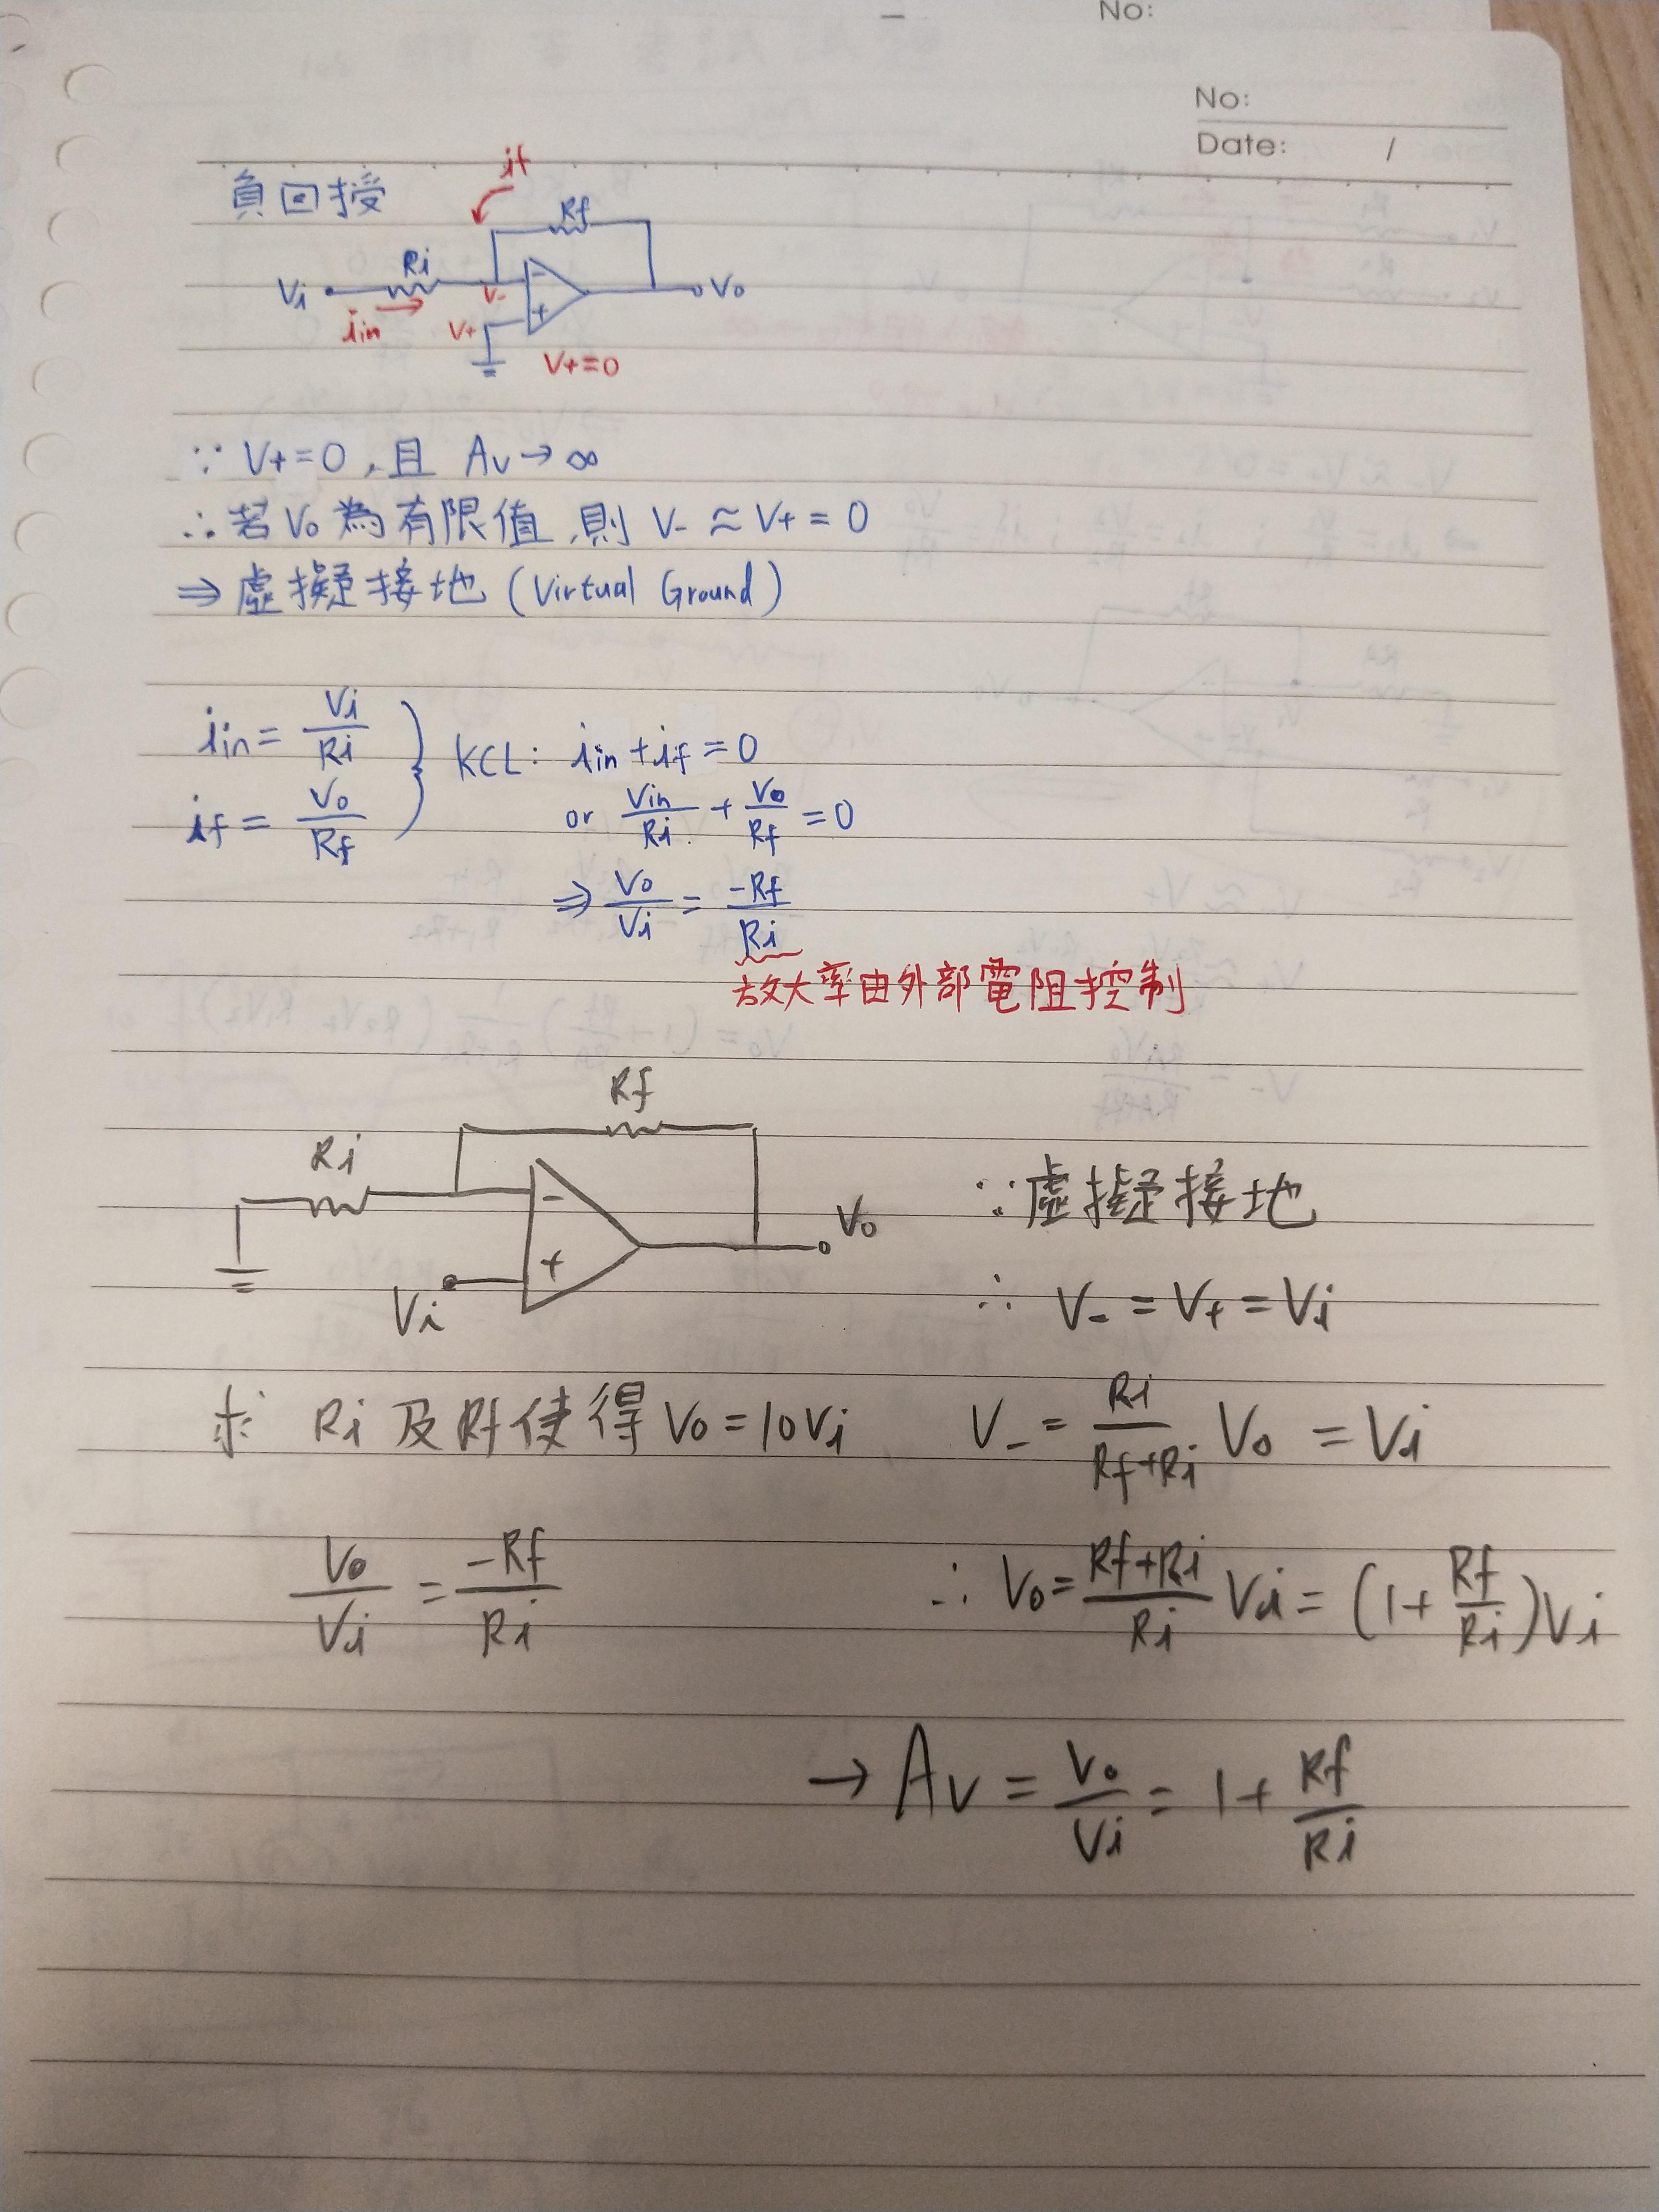 No:
No:
Date: /
負回授
if
Rf
Ri
Vi
V-
Vo
iin
V+
V+=0
∵ V+=0,且 Av→∞
∴若Vo為有限值,則 V- ≈ V+ = 0
⇒虛擬接地(Virtual Ground)
iin = Vi/Ri
if = Vo/Rf
KCL: iin + if = 0
or Vin/Ri + Vo/Rf = 0
⇒ Vo/Vi = -Rf/Ri
放大率由外部電阻控制
Rf
Ri
-
+
Vo
Vi
∵虛擬接地
∴ V- = V+ = Vi
求 Ri及Rf使得Vo=10Vi
V- = Ri/(Rf+Ri) Vo = Vi
Vo/Vi = -Rf/Ri
∴ Vo = (Rf+Ri)/Ri Vi = (1+Rf/Ri)Vi
→ Av = Vo/Vi = 1+ Rf/Ri